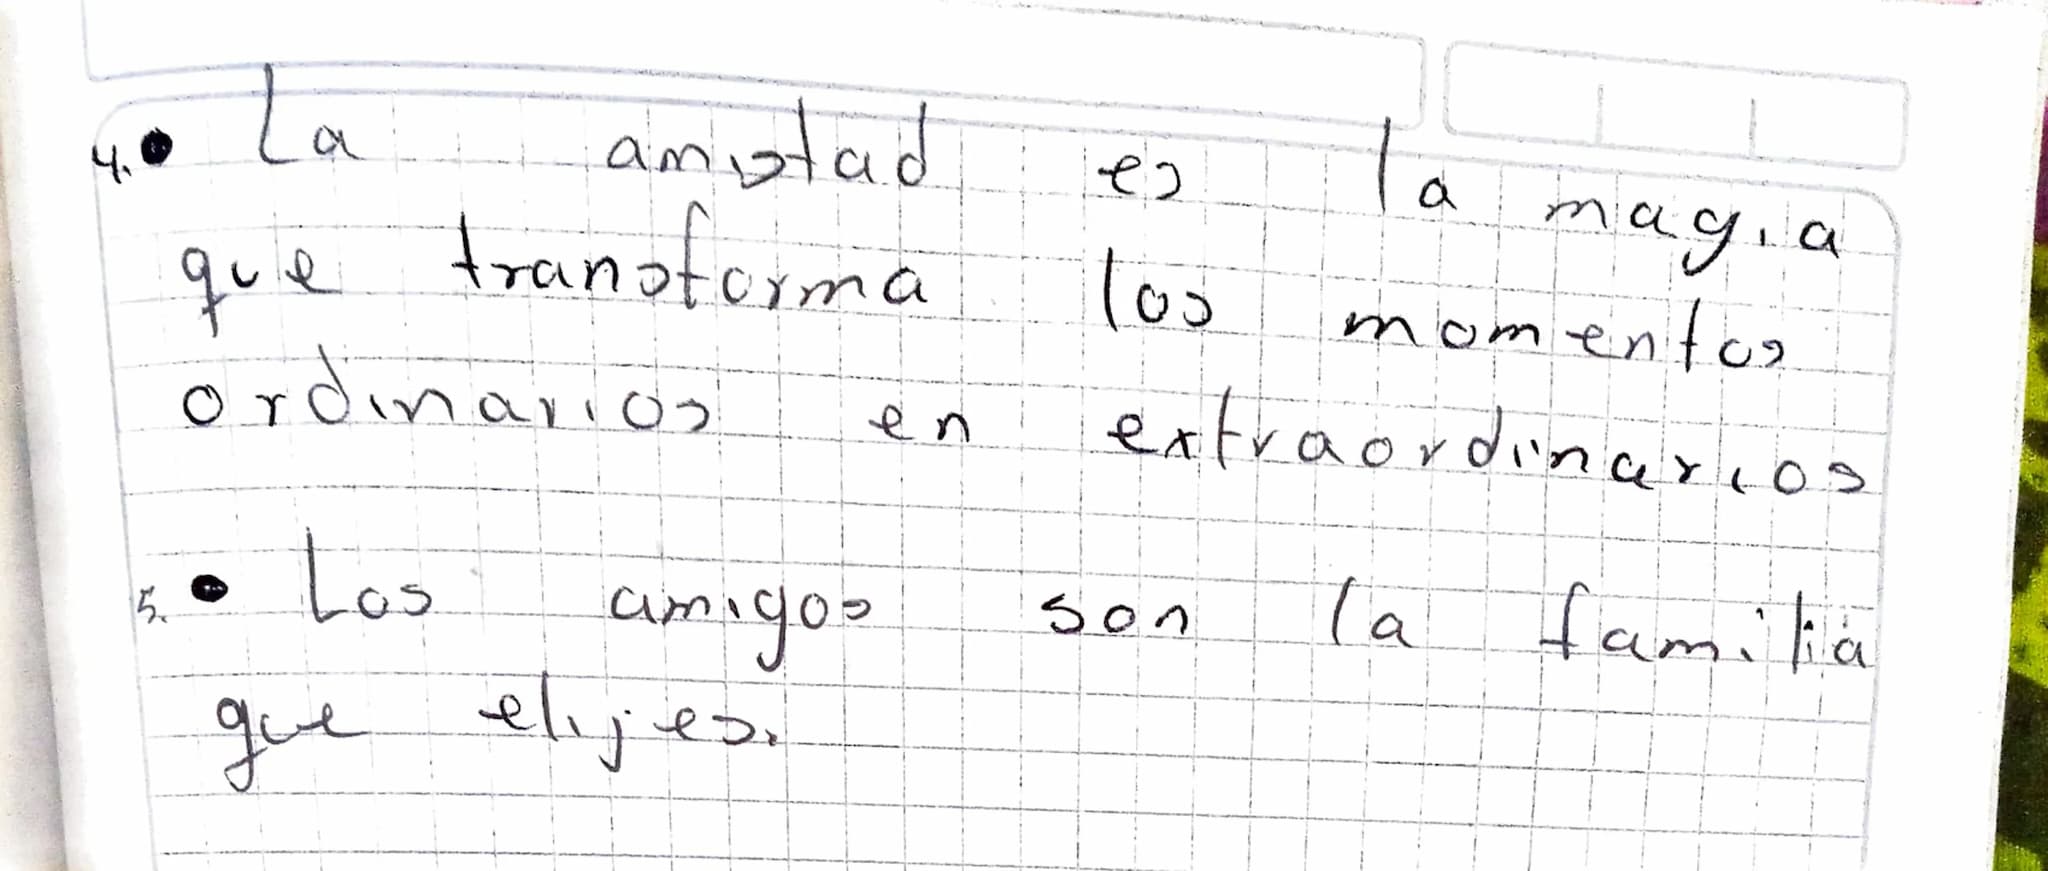 4.• La amistad es la magia
que transforma los momentos
ordinarios en extraordinarios
5.• Los amigos son la familia
que elijes.